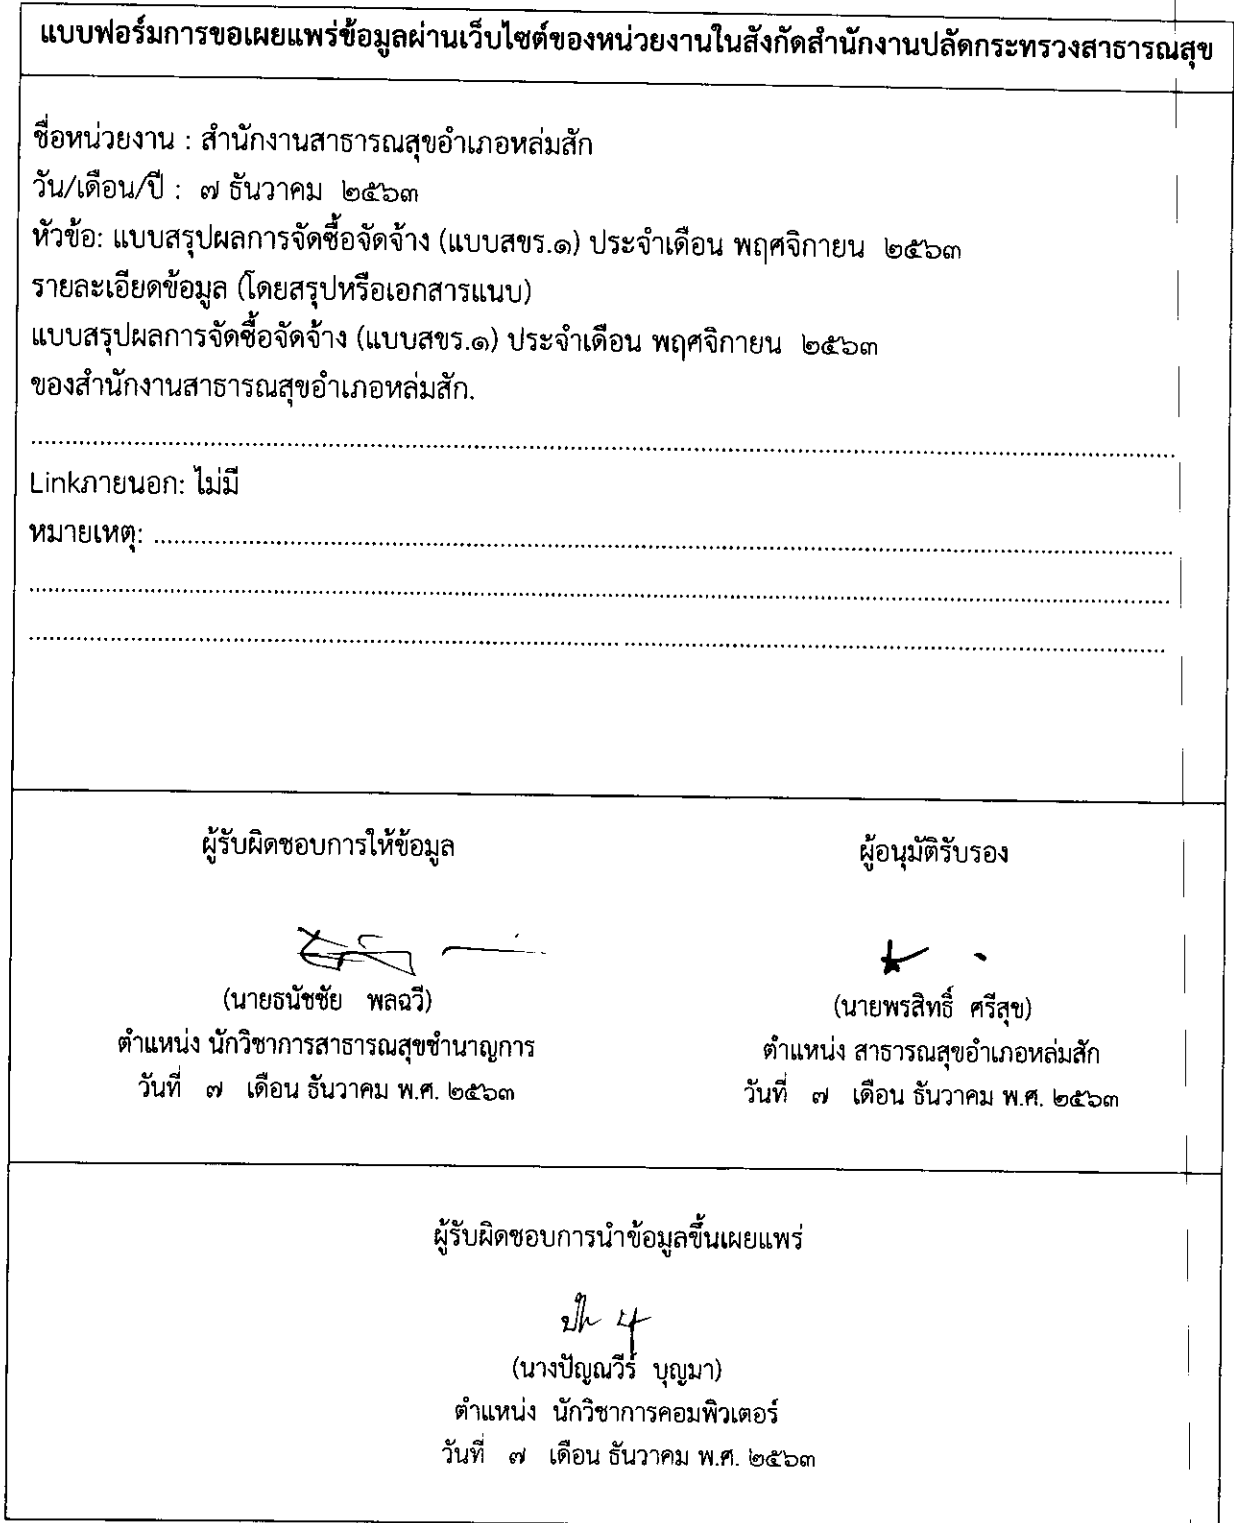 แบบฟอร์มการขอเผยแพร่ข้อมูลผ่านเว็บไซต์ของหน่วยงานในสังกัดสำนักงานปลัดกระทรวงสาธารณสุข
ชื่อหน่วยงาน : สำนักงานสาธารณสุขอำเภอหล่มสัก
วัน/เดือน/ปี : ๗ ธันวาคม ๒๕๖๓
หัวข้อ: แบบสรุปผลการจัดซื้อจัดจ้าง (แบบสขร.๑) ประจำเดือน พฤศจิกายน ๒๕๖๓
รายละเอียดข้อมูล (โดยสรุปหรือเอกสารแนบ)
แบบสรุปผลการจัดซื้อจัดจ้าง (แบบสขร.๑) ประจำเดือน พฤศจิกายน ๒๕๖๓
ของสำนักงานสาธารณสุขอำเภอหล่มสัก.
Linkภายนอก: ไม่มี
หมายเหตุ:
ผู้รับผิดชอบการให้ข้อมูล
(นายธนัชชัย พลฉวี)
ตำแหน่ง นักวิชาการสาธารณสุขชำนาญการ
วันที่ ๗ เดือน ธันวาคม พ.ศ. ๒๕๖๓
ผู้อนุมัติรับรอง
(นายพรสิทธิ์ ศรีสุข)
ตำแหน่ง สาธารณสุขอำเภอหล่มสัก
วันที่ ๗ เดือน ธันวาคม พ.ศ. ๒๕๖๓
ผู้รับผิดชอบการนำข้อมูลขึ้นเผยแพร่
(นางปัญณวีร์ บุญมา)
ตำแหน่ง นักวิชาการคอมพิวเตอร์
วันที่ ๗ เดือน ธันวาคม พ.ศ. ๒๕๖๓